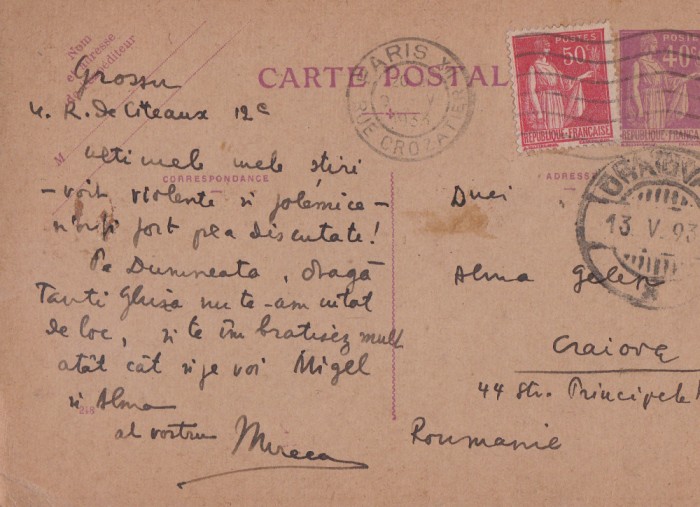 Nom
et adresse
de l'expéditeur
M
Grossu
4. R. de Citeaux 12e
CARTE POSTALE
PARIS XII
RUE CROZATIER
POSTES
50c
REPUBLIQUE-FRANÇAISE
POSTES
40c
REPUBLIQUE-FRANÇAISE
CORRESPONDANCE
ultimele mele știri
- voit violente și polémice -
fort pea discutate!
Pe Dumneata, dragă
Tanti nu te-am uitat
de loc, și te îmbratisez mult
atât cât și pe voi Migel
și Alma
al vostru Mireea
ADRESSE
CRAIOVA
13. V. 93
Alma
Craiova
44 Str. Principele
Roumanie